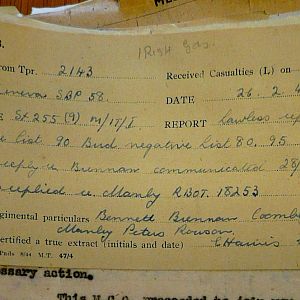 3.
1 Righ gas.
rom Tpr. 2143 Received Casualties (L) on
SBP 58. DATE 26. 2. 4
E St 255 (9) M/IT/I REPORT Lawless rep
e List 90 Bud negative List 80. 95
reply re Brennan communicated 28/
replied re. Manly RBOT. 18253
gimental particulars Bennett Brennan Coomb
Manley Peters Rowson.
ertified a true extract (initials and date) CHarris
Pads 8/44 M.T. 47/4
ssary action.
This M.C.C.